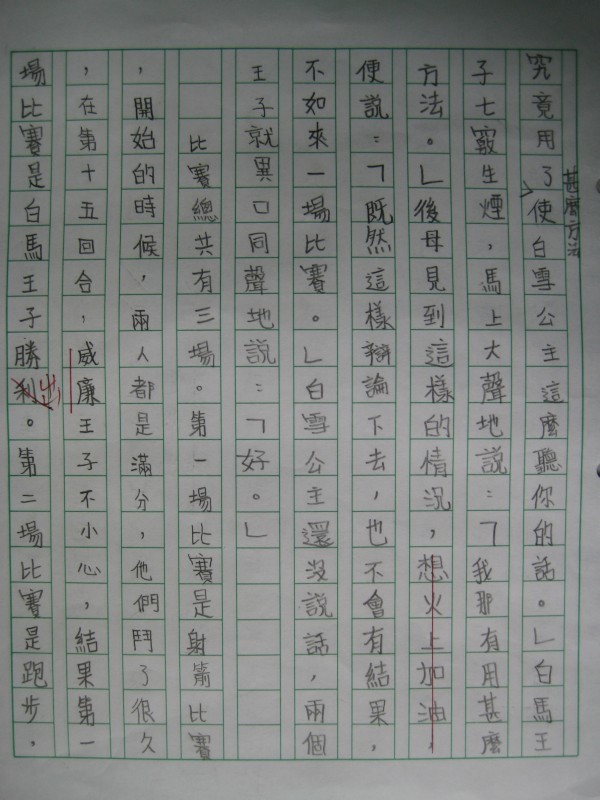 究竟用了使白雪公主這麼聽你的話。」白馬王
甚麼方法
子七竅生煙，馬上大聲地說：「我那有用甚麼
方法。」後母見到這樣的情況，想火上加油，
便說：「既然這樣辯論下去，也不會有結果，
不如來一場比賽。」白雪公主還沒說話，兩個
王子就異口同聲地說：「好。」
比賽總共有三場。第一場比賽是射箭比賽
，開始的時候，兩人都是滿分，他們鬥了很久
，在第十五回合，威廉王子不小心，結果第一
場比賽是白馬王子勝利。第二場比賽是跑步，
出